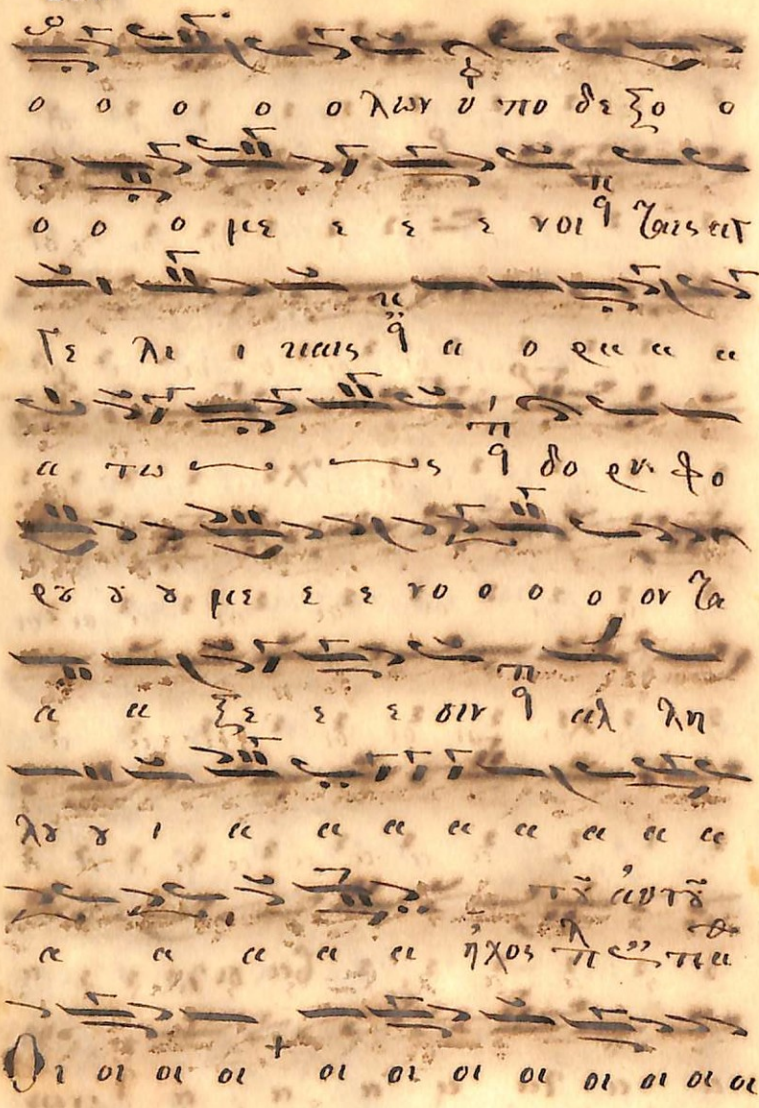 ο ο ο ο ο λων υ πο δε ξο ο
ο ο ο με ε ε ε νοι ταις αγ
γε λι ι καις α ο ρα α α
α τω ς δο ρυ φο
ρου ου ου με ε ε νο ο ο ο ον τα
α α ξε ε ε σιν αλ λη
λου ου ι α α α α α α α α
του αυτου
α α α α α ηχος
Οι οι οι οι οι οι οι οι οι οι οι οι